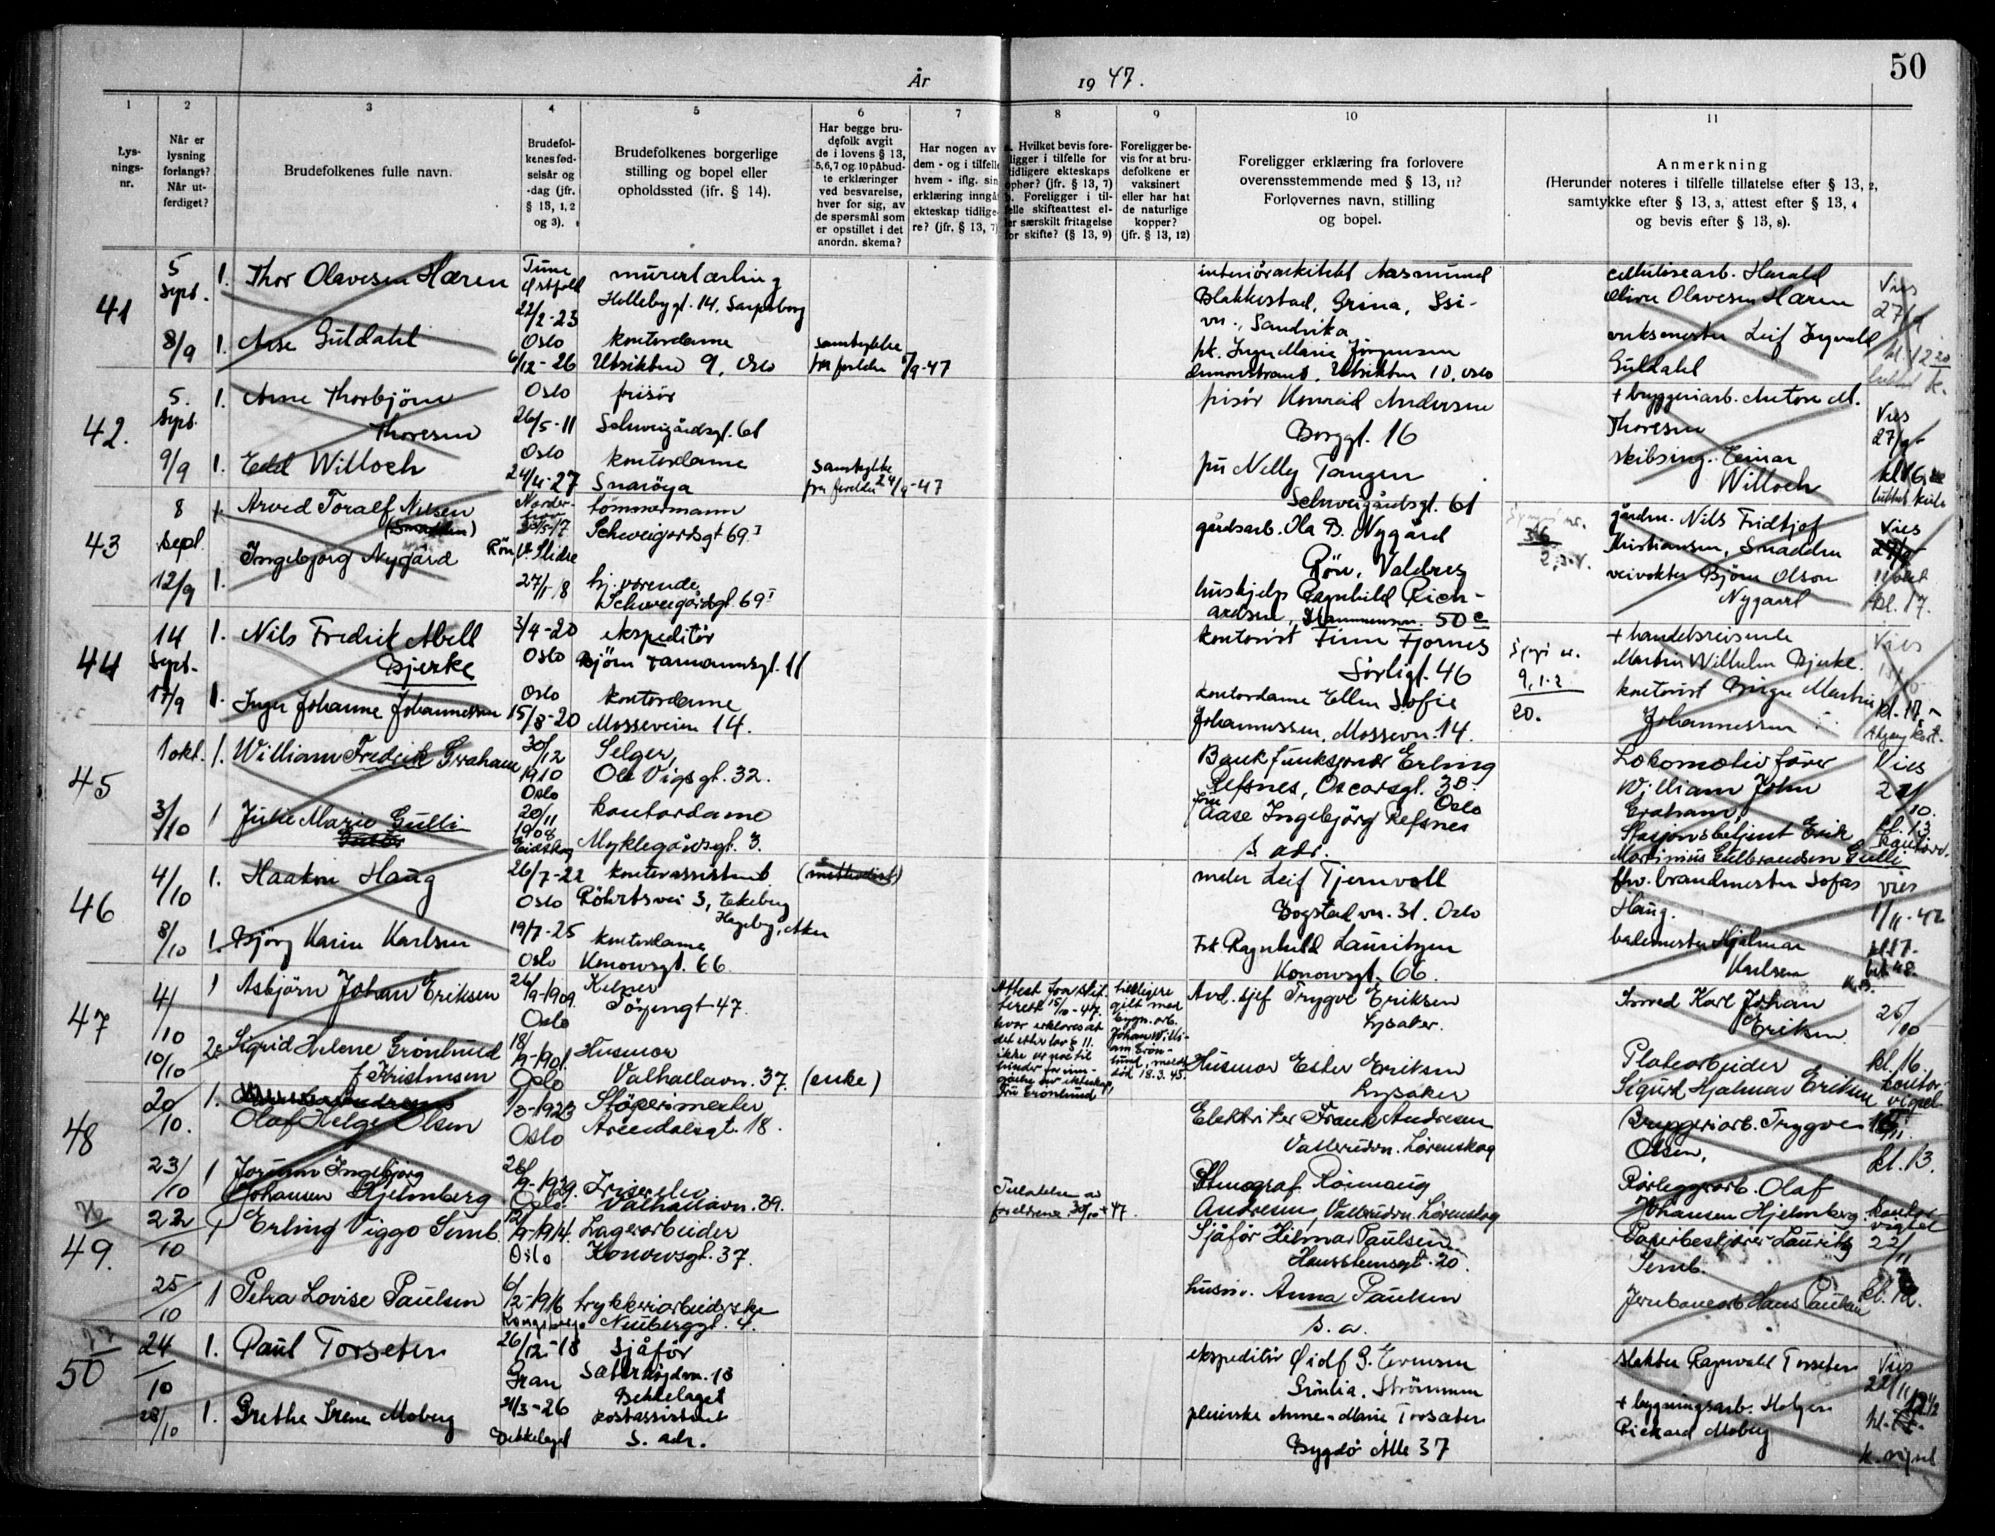 50
År 1947.
1 2 3 4 5 6 7 8 9 10 11
Lys-
nings-
nr.
Når er
lysning
forlangt?
Når ut-
ferdiget?
Brudefolkenes fulle navn.
Brudefol-
kenes fød-
selsår og
-dag (jfr.
§ 13, 1, 2
og 3).
Brudefolkenes borgerlige
stilling og bopel eller
opholdssted (ifr. § 14).
Har begge bru-
defolk avgit
de i lovens § 13,
5,6,7 og 10 påbud-
te erklæringer
ved besvarelse,
hver for sig, av
de spørsmål som
er opstillet i det
anordn. skema?
Har nogen av
dem - og i tilfelle
hvem - iflg. sin
erklæring inngå
ekteskap tidlige-
re? (jfr. § 13, 7)
a. Hvilket bevis fore-
ligger i tilfelle for
tidligere ekteskaps
ophør? (jfr. § 13, 7)
b. Foreligger i til-
felle skifteattest el-
ler særskilt fritagelse
for skifte? (§ 13, 9)
Foreligger be-
vis for at bru-
defolkene er
vaksinert
eller har hat
de naturlige
kopper?
(jfr. § 13, 12)
Foreligger erklæring fra forlovere
overensstemmende med § 13, 11?
Forlovernes navn, stilling
og bopel.
Anmerkning
(Herunder noteres i tilfelle tillatelse efter § 13, 2,
samtykke efter § 13, 3, attest efter § 13, 4
og bevis efter § 13, 8).
41
5 Sept. 1. Thor Olavesen Haren
Tune Østfold 22/2-23
murerlærling
Hellebygt. 14, Sarpsborg
8/9 1. Åse Guldahl
Oslo 6/12-26
kontordame
Utsikten 9, Oslo
samtykke
fra foreldre 5/9-47
interiørarkitekt Aasmund
Blakkestad, Grina,
vn., Sandvika
frk. Inger Marie Jørgensen
demonstrant, Utsikten 10, Oslo
cellulosearb. Harald
Oliver Olavesen Haren
verksmester Leif Ingvald
Guldahl
Vies
27/9
kl. 12 20
42.
5. Sept. 1. Arne Thorbjørn
Thoresen
Oslo 26/5-11
frisør
Schweigårdsgt. 61
9/9 1. Edel Willoch
Oslo 24/4-27
kontordame
Snarøya
samtykke
fra foreldre
frisør Konrad Andersen
Borggt. 16
fru Nelly Tangen
Schweigårdsgt. 61
+ bryggeriarb. Anton M.
Thoresen
skibsing. Einar
Willoch
Vies
27/9
43
8 Sept. Arvid Toralf Nilsen
(Snadden)
Norderhov
tømmermann
Schweigårdsgt 69 I
12/9 1. Ingebjørg Nygård
Røn V. Slidre
27/1 18
hj. værende
Schweigårdsgt. 69 I
gårdsarb. Ola B. Nygård
Røn, Valdres
hushjelp Ragnhild Rich-
ardsen, 50 c
gårdm. Nils Fridtjof
Kristiansen, Snadden
veivokter Bjørn Olson
Nygaard
Vies
kl. 17.
44
14 Sept. 1. Nils Fredrik Abell
Bjerke
3/4-20
Oslo
ekspeditør
Bjørn Farmannsgt. 11
17/9 1. Inger Johanne Johannessen
Oslo
15/8-20
kontordame
Mosseveien 14.
kontorist Finn Fjornes
Sørligt. 46
kontordame Ellen Sofie
Johannessen, Mossevn. 14.
9, 1-2
20.
+ handelsreisende
Martin Wilhelm Bjerke.
kontorist Birger Martin
Johannessen
Vies
45
1 okt. 1. William Fredrik Graham
30/12
1910
Oslo
Selger,
Ole Vigsgt. 32.
3/10 1 Julie Marie Gulli
20/11
1908
Eidskog
kontordame
Myklegårdsgt. 3.
Bankfunksjonær Erling
Refsnes, Oscarsgt. 3B
Oslo
Fru
Aase Ingebjørg Refsnes
s. adr.
Lokomotivfører
William John
Graham.
Stasjonsbetjent Erik
Martinius Gulbrandsen Gulli
Vies
kl. 13
46
4/10 1. Haakon Haug
26/7-22
Oslo
kontorassistent
Röhrtsvei 3, Ekeberg
Hageby, Aker
(methodist)
8/10 1. Bjørg Karin Karlsen
19/7-25
Oslo
kontordame
Konowsgt. 66
maler Leif Tjernvoll
Bogstadvn. 31. Oslo
Frk. Ragnhild Lauritzen
Konowsgt. 66.
fhv. brandmester Sofas
Haug.
bademester Hjalmar
Karlsen
Vies
1/11-47
kl 17-
47
4/10 1 Asbjørn Johan Eriksen
26/9-1909.
Oslo
Kelner
Tøyengt 47.
10/10 Sigrid Helene Grønlund
f. Kristensen
18/9-1901.
Oslo
Husmor
Valhallavn. 37. (enke)
Attest fra skif-
terett 15/10-47.
hvor erklæres at
det etter lov § 11.
ikke er noe til
hinder for inn-
gåelse av ekteskap,
Fru Grønlund
tidligere
gift med
bygn.arb.
Johan Willi-
am Grøn-
lund, meldt
død 18.3.45.
Avd. sjef Trygve Eriksen
Lysaker.
Husmor Ester Eriksen
Lysaker
Karl Johan
Eriksen
Platearbeider
Sigurd Hjalmar Eriksen
25/10
kl. 16
48
20/10. 1.
Olaf Helge Olsen
1/3-1923
Oslo
Støperimester
Arendalsgt. 18.
23/10 1 Jorunn Ingebjørg
Johansen Hjelmberg
26/9-1929.
Oslo.
Frisørelev
Valhallavn. 39.
Tillatelse av
foreldrene 30/10-47.
Elektriker Frank Andresen
Vallerudvn. Lørenskog
Stenograf Rönnaug
Andresen, Vallerudvn. Lørenskog
Bryggeriarb. Trygve
Olsen,
Rørleggerarb. Olaf
Johansen Hjelmberg.
kl. 13.
49.
22/10 1 Erling Viggo Semb.
12/9-1914.
Oslo
Lagerarbeider
Konowsgt. 37.
25/10 1 Petra Lovise Paulsen
6/2-1916
Kongsberg
trykkeriarbeiderske
Neuberggt. 4.
Sjåfør Hilmar Paulsen
Hansteensgt. 20.
husm. Anna Paulsen
s. a.
Papirbeskjærer Lauritz
Semb.
Jernbanearb Hans Paulsen
22/11
kl. 12.
50
24/10 1. Paul Torseter
26/12-18
Gran
Sjåfør
Sæterhøjdvn. 18
Bekkelaget
28/10 1. Grethe Irene Moberg
21/3-26
Bekkelaget
kostassistent
s. adr.
ekspeditør Øidf G. Evensen
Grönlia, Strømmen
pleierske Anne-Marie Torseter
Bygdø Alle 37
slakter Ragnvald Torseter
+ bygningsarb. Holger
Rickard Moberg
Vies
22/11
k. vigsel